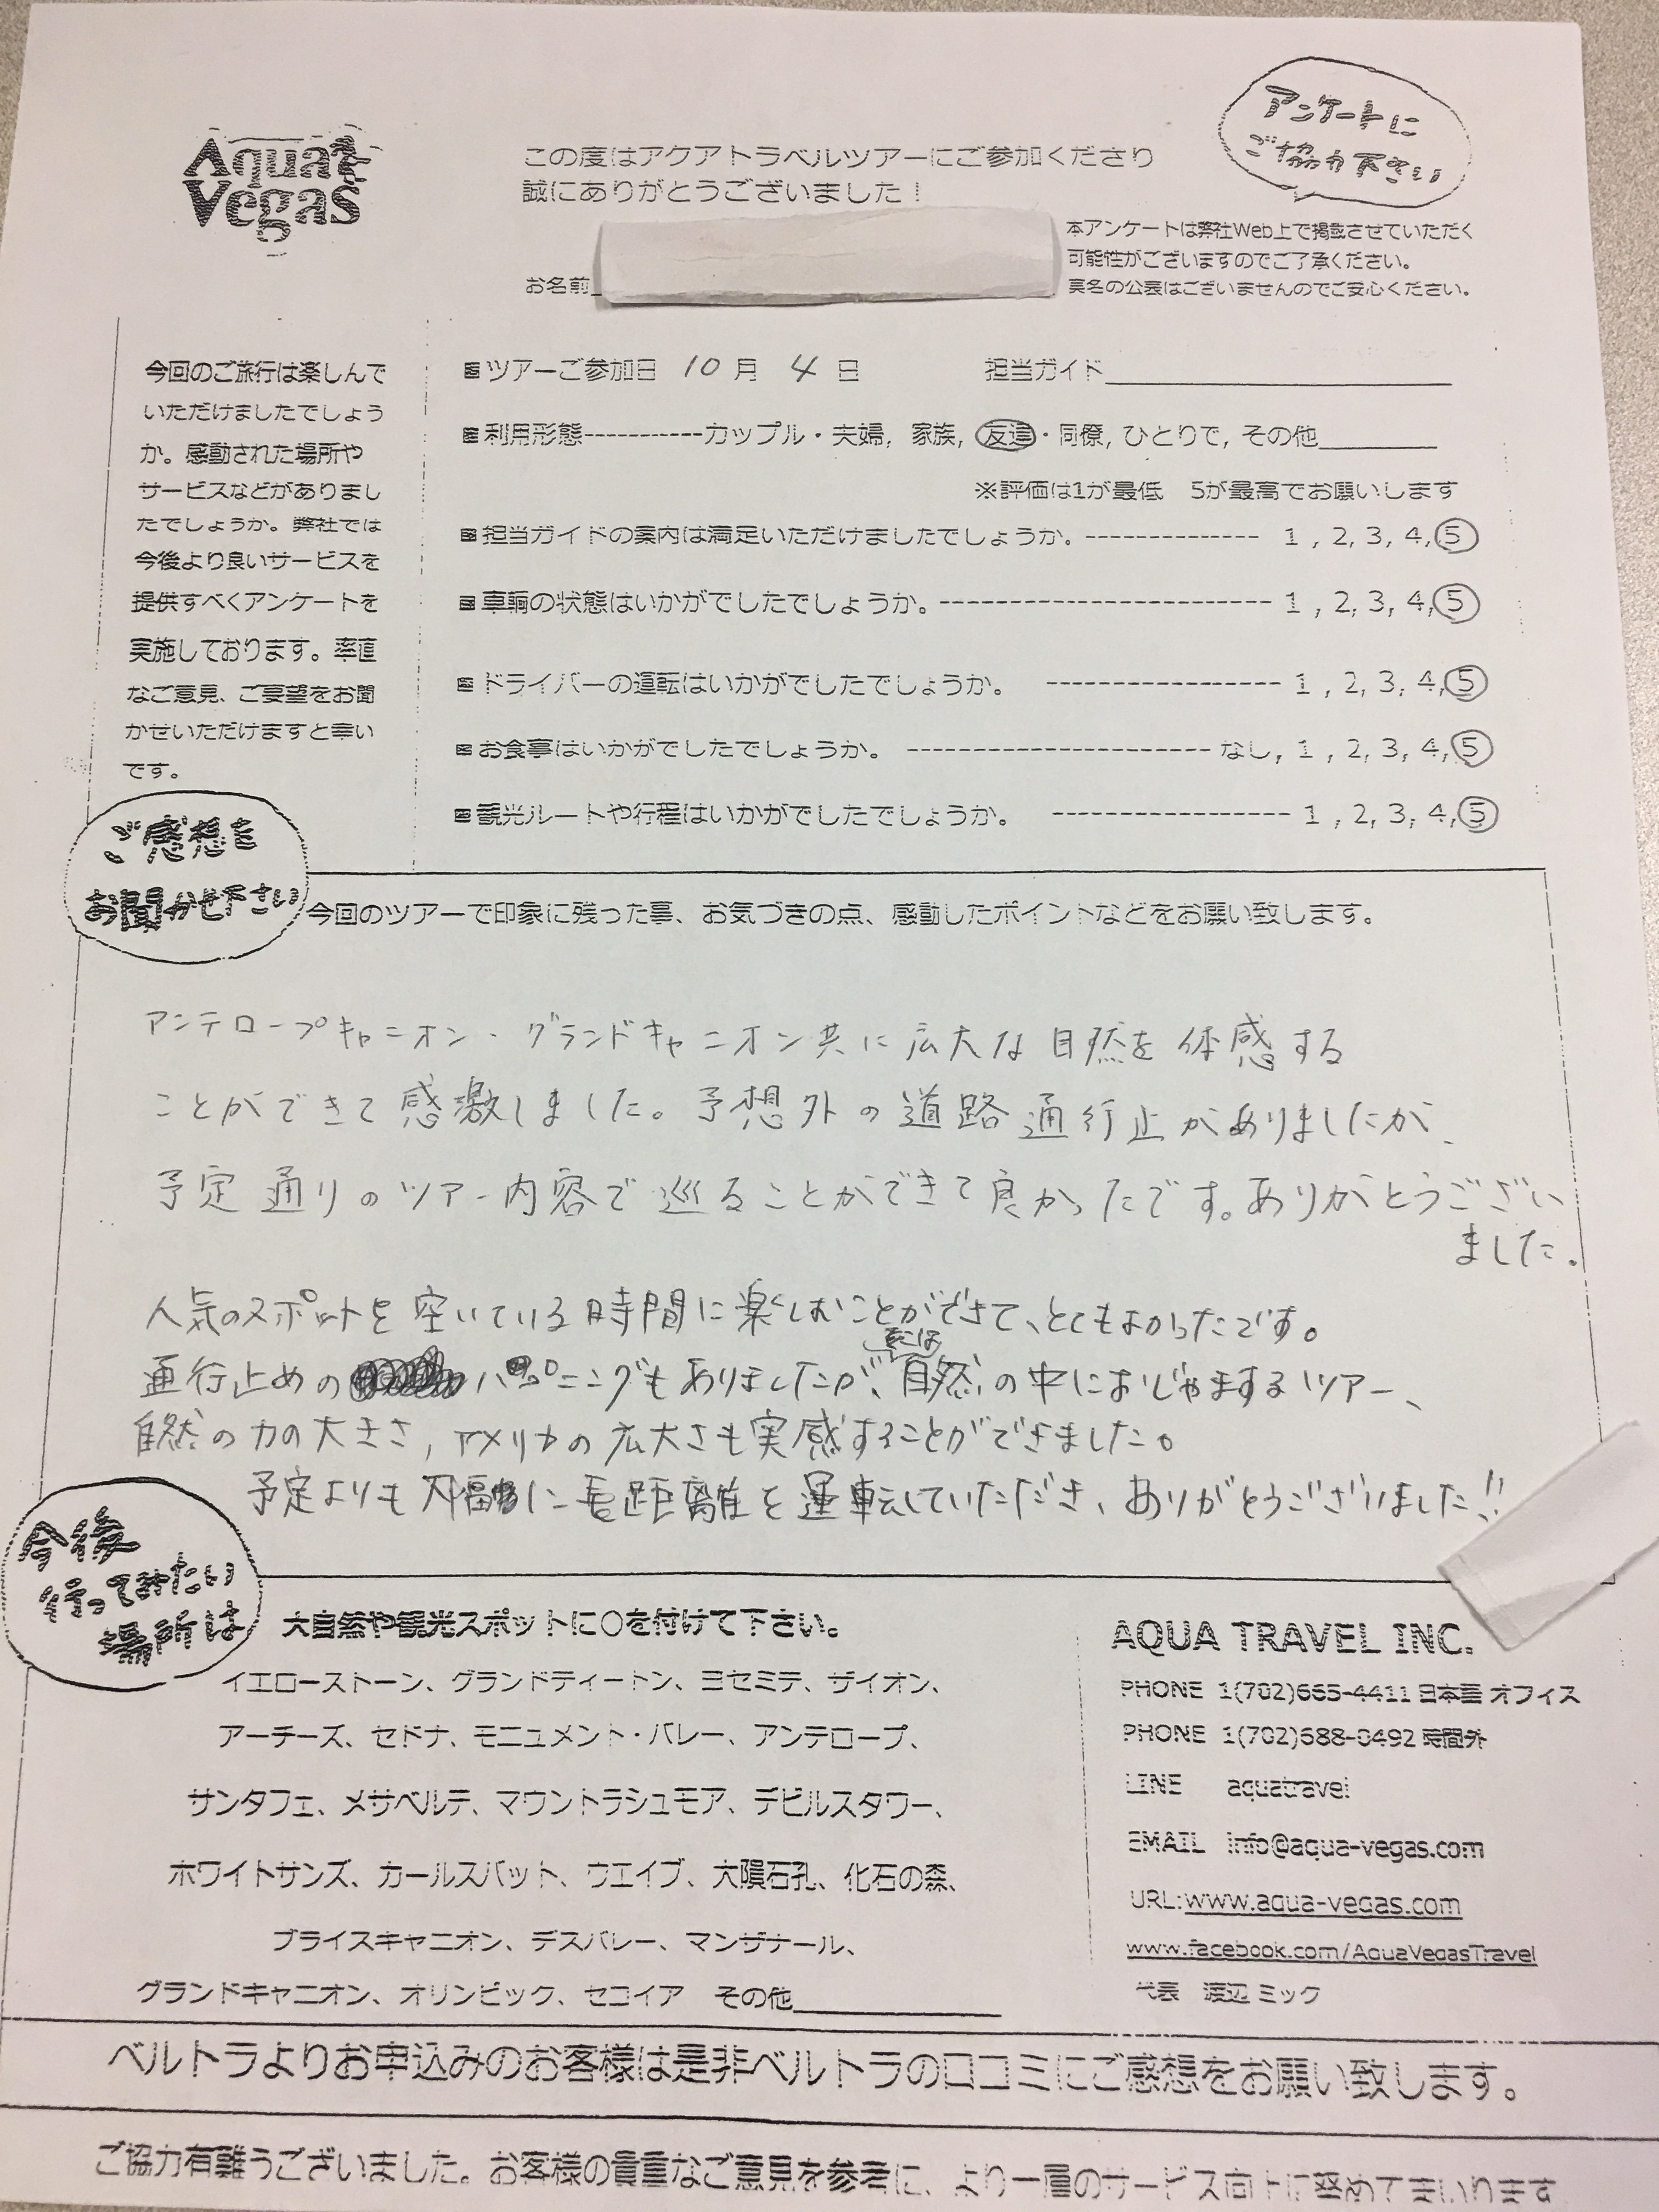 Aqua
Vegas
この度はアクアトラベルツアーにご参加くださり
誠にありがとうございました！
アンケートに
ご協力下さい
お名前
本アンケートは弊社Web上で掲載させていただく
可能性がございますのでご了承ください。
実名の公表はございませんのでご安心ください。
今回のご旅行は楽しんで
いただけましたでしょう
か。感動された場所や
サービスなどがありまし
たでしょうか。弊社では
今後より良いサービスを
提供すべくアンケートを
実施しております。率直
なご意見、ご要望をお聞
かせいただけますと幸い
です。
ツアーご参加日 10月 4日 担当ガイド
利用形態-----------カップル・夫婦, 家族, 友達・同僚, ひとりで, その他
※評価は1が最低 5が最高でお願いします
担当ガイドの案内は満足いただけましたでしょうか。-------------- 1 , 2, 3, 4, 5
車輌の状態はいかがでしたでしょうか。------------------------- 1 , 2, 3, 4, 5
ドライバーの運転はいかがでしたでしょうか。 ----------------- 1 , 2, 3, 4, 5
お食事はいかがでしたでしょうか。 ---------------------- なし, 1 , 2, 3, 4, 5
観光ルートや行程はいかがでしたでしょうか。 ----------------- 1 , 2, 3, 4, 5
ご感想を
お聞かせ下さい
今回のツアーで印象に残った事、お気づきの点、感動したポイントなどをお願い致します。
アンテロープキャニオン・グランドキャニオン共に広大な自然を体感する
ことができて感激しました。予想外の道路通行止がありましたが、
予定通りのツアー内容で巡ることができて良かったです。ありがとうござい
ました。
人気のスポットを空いている時間に楽しむことができて、とてもよかったです。
通行止めのハプニングもありましたが、自然の中におじゃまするツアー、
自然の力の大きさ, アメリカの広大さも実感することができました。
予定よりも大幅に長距離を運転していただき、ありがとうございました!!
今後
行ってみたい
場所は
大自然や観光スポットに○を付けて下さい。
イエローストーン、グランドティートン、ヨセミテ、ザイオン、
アーチーズ、セドナ、モニュメント・バレー、アンテロープ、
サンタフェ、メサベルデ、マウントラシュモア、デビルスタワー、
ホワイトサンズ、カールスバット、ウエイブ、大隕石孔、化石の森、
ブライスキャニオン、デスバレー、マンザナール、
グランドキャニオン、オリンピック、セコイア その他
AQUA TRAVEL INC.
PHONE 1(702)665-4411 日本語 オフィス
PHONE 1(702)688-0492 時間外
LINE aquatravel
EMAIL info@aqua-vegas.com
URL:www.aqua-vegas.com
www.facebook.com/AquaVegasTravel
代表 渡辺 ミック
ベルトラよりお申込みのお客様は是非ベルトラの口コミにご感想をお願い致します。
ご協力有難うございました。お客様の貴重なご意見を参考に、より一層のサービス向上に努めてまいります